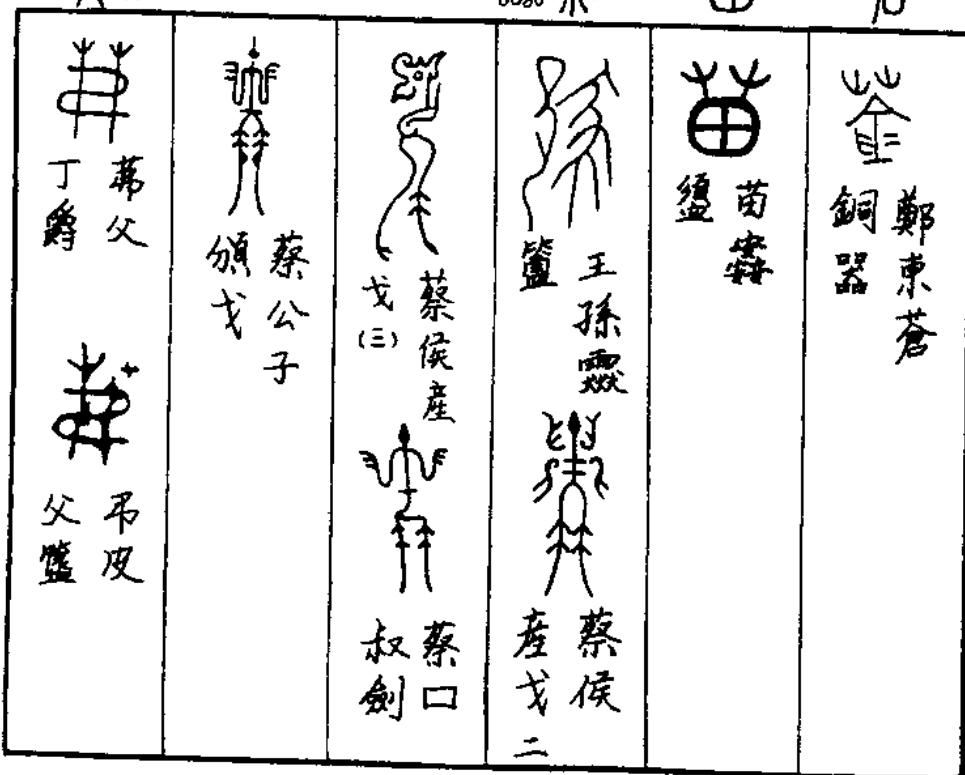 鄭東蒼
銅器
苗
盨
王孫
簠
蔡侯
産戈二
蔡侯産
戈(三)
蔡口
叔劍
蔡公子
頒戈
茀父
丁爵
弔皮
父簠